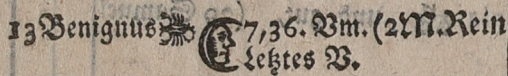 13 Benignus ☾ 7,36. Vm. (2 M. Rein
Letztes V.